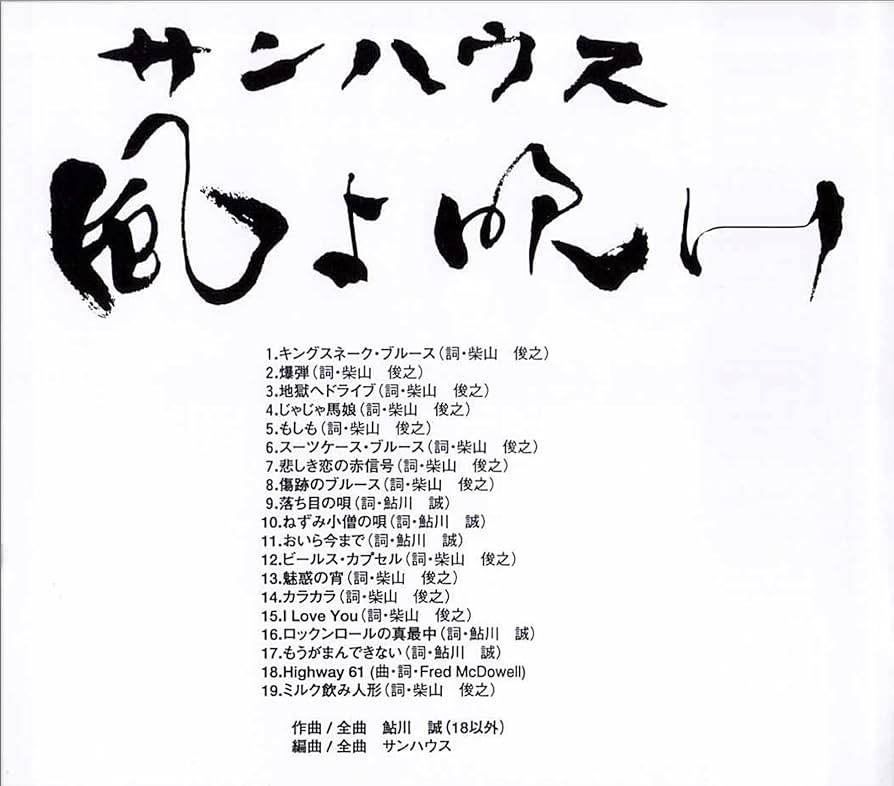 サンハウス
風よ吹け
1.キングスネーク・ブルース(詞・柴山　俊之)
2.爆弾(詞・柴山　俊之)
3.地獄へドライブ(詞・柴山　俊之)
4.じゃじゃ馬娘(詞・柴山　俊之)
5.もしも(詞・柴山　俊之)
6.スーツケース・ブルース(詞・柴山　俊之)
7.悲しき恋の赤信号(詞・柴山　俊之)
8.傷跡のブルース(詞・柴山　俊之)
9.落ち目の唄(詞・鮎川　誠)
10.ねずみ小僧の唄(詞・鮎川　誠)
11.おいら今まで(詞・鮎川　誠)
12.ビールス・カプセル(詞・柴山　俊之)
13.魅惑の宵(詞・柴山　俊之)
14.カラカラ(詞・柴山　俊之)
15.I Love You(詞・柴山　俊之)
16.ロックンロールの真最中(詞・鮎川　誠)
17.もうがまんできない(詞・鮎川　誠)
18.Highway 61 (曲・詞・Fred McDowell)
19.ミルク飲み人形(詞・柴山　俊之)
作曲 / 全曲　鮎川　誠(18以外)
編曲 / 全曲　サンハウス